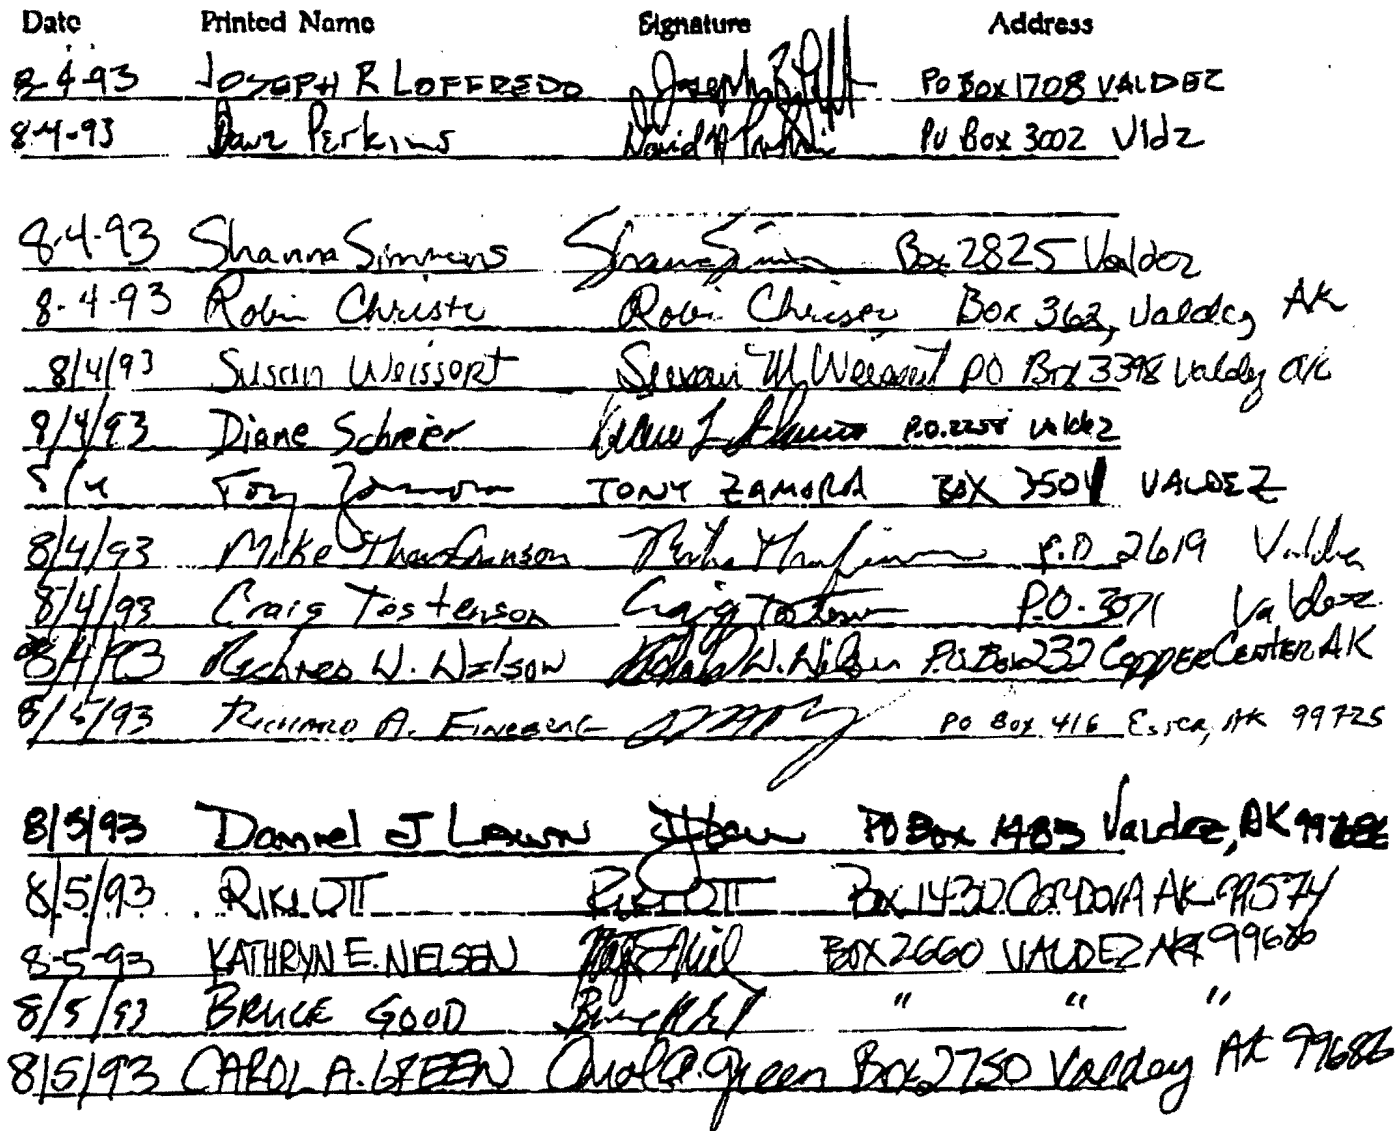 Date Printed Name Signature Address
8-4-93 JOSEPH R LOFFREDO Joseph R PO Box 1708 VALDEZ
8-4-93 Dave Perkins David Perkins PO Box 3002 Vldz
8-4-93 Shanna Simmons Box 2825 Valdez
8-4-93 Robin Christe Robin Box 362, Valdez AK
8/4/93 Susan Weissert Susan M Weissert PO Box 3398 Valdez AK
8/4/93 Diane Schreier P.O. 2258 Valdez
8/4 Tony Zamora TONY ZAMORA BOX 3501 VALDEZ
8/4/93 Mike P.O 2619 Valdez
8/4/93 Craig Tostenson Craig P.O. 3071 Valdez
8/4/93 Richard W. Wilson W. Wilson P.O. Box 232 COPPER CENTER AK
8/5/93 RICHARD A. FINEBERG PO Box 416 Ester, AK 99725
8/5/93 Daniel J LAWN PO Box Valdez, AK 99686
8/5/93 RIKI OTT RIKI OTT Box 1430 CORDOVA AK 99574
8-5-93 KATHRYN E. NIELSEN BOX 2660 VALDEZ AK 99686
8/5/93 BRUCE GOOD " " "
8/5/93 CAROL A. GREEN Carol A. Green Box 2750 Valdez AK 99686